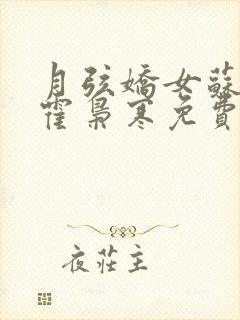 月弦嬌女蘇
霍梟寒免費
夜莊主